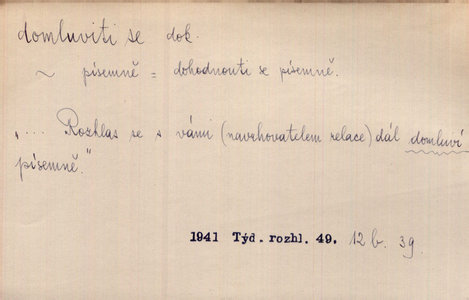 domluviti se dok.
~ písemně = dohodnouti se písemně.
„... Rozhlas se s vámi (navrhovatelem relace) dál domluví
písemně."
1941 Týd. rozhl. 49. 12 b. 39.